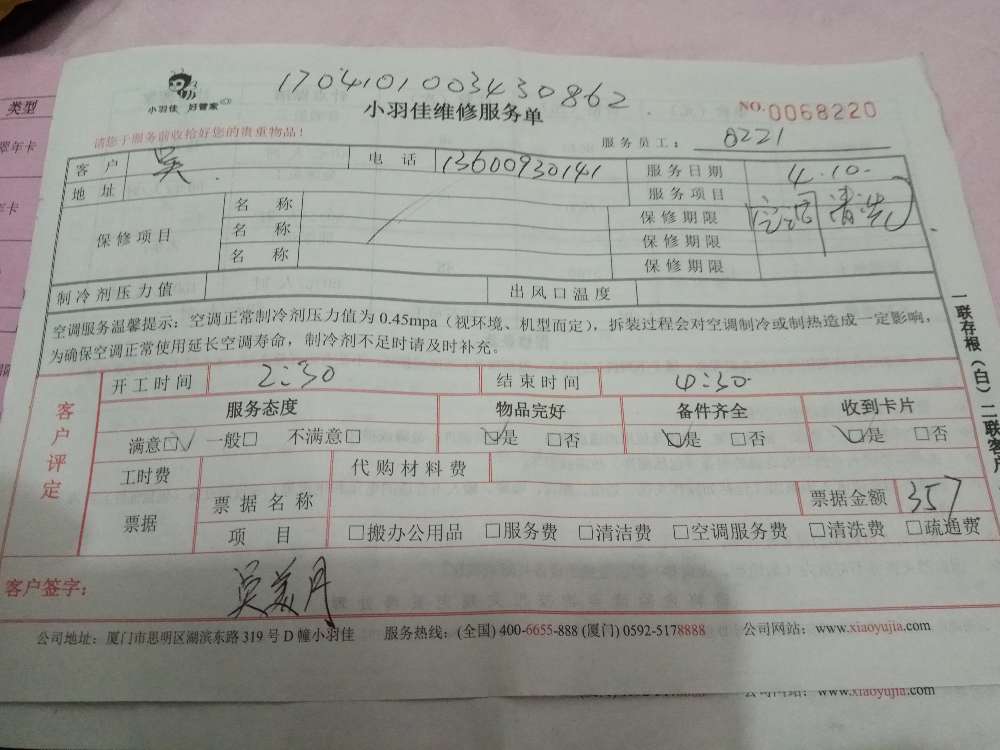 类型
罩年卡
年卡
1704101003430862
小羽佳 好管家
小羽佳维修服务单
NO.0068220
请您于服务前收拾好您的贵重物品!
服务员工: 0221
客户 吴 电话 13600930141 服务日期 4.10.
地址 服务项目 空调清洗
保修项目 名称 保修期限
名称 保修期限
名称 保修期限
制冷剂压力值 出风口温度
空调服务温馨提示:空调正常制冷剂压力值为 0.45mpa(视环境、机型而定),拆装过程会对空调制冷或制热造成一定影响,
为确保空调正常使用延长空调寿命,制冷剂不足时请及时补充。
客户评定
开工时间 2:30 结束时间 4:30
服务态度 物品完好 备件齐全 收到卡片
满意☑ 一般□ 不满意□ ☑是 □否 ☑是 □否 ☑是 □否
工时费 代购材料费
票据 票据名称 票据金额 357
项目 □搬办公用品 □服务费 □清洁费 □空调服务费 □清洗费 □疏通费
客户签字: 吴美月
公司地址:厦门市思明区湖滨东路 319 号 D 幢小羽佳 服务热线:(全国) 400-6655-888 (厦门) 0592-5178888 公司网站:www.xiaoyujia.com
一联存根(白)二联客户
www.xiaoyujia.com